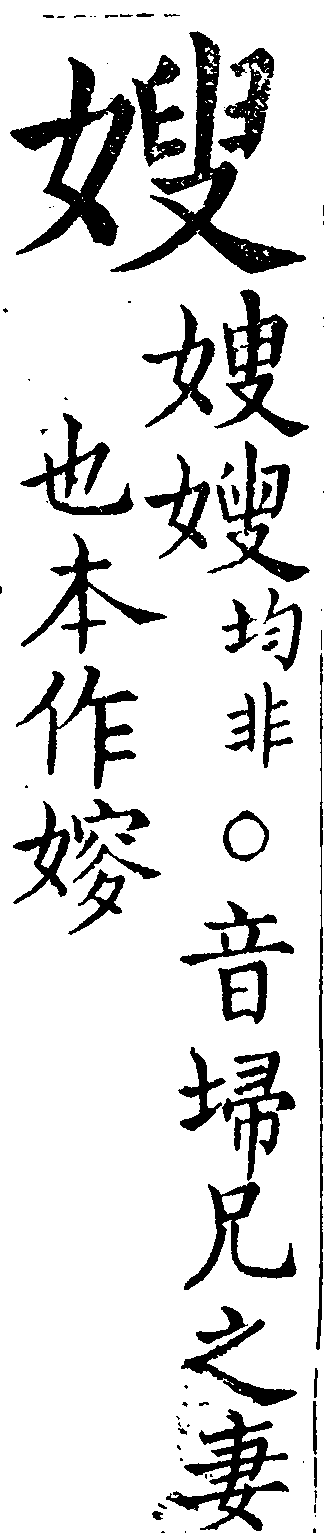 嫂
嫂嫂均非○音埽兄之妻
也本作㛮